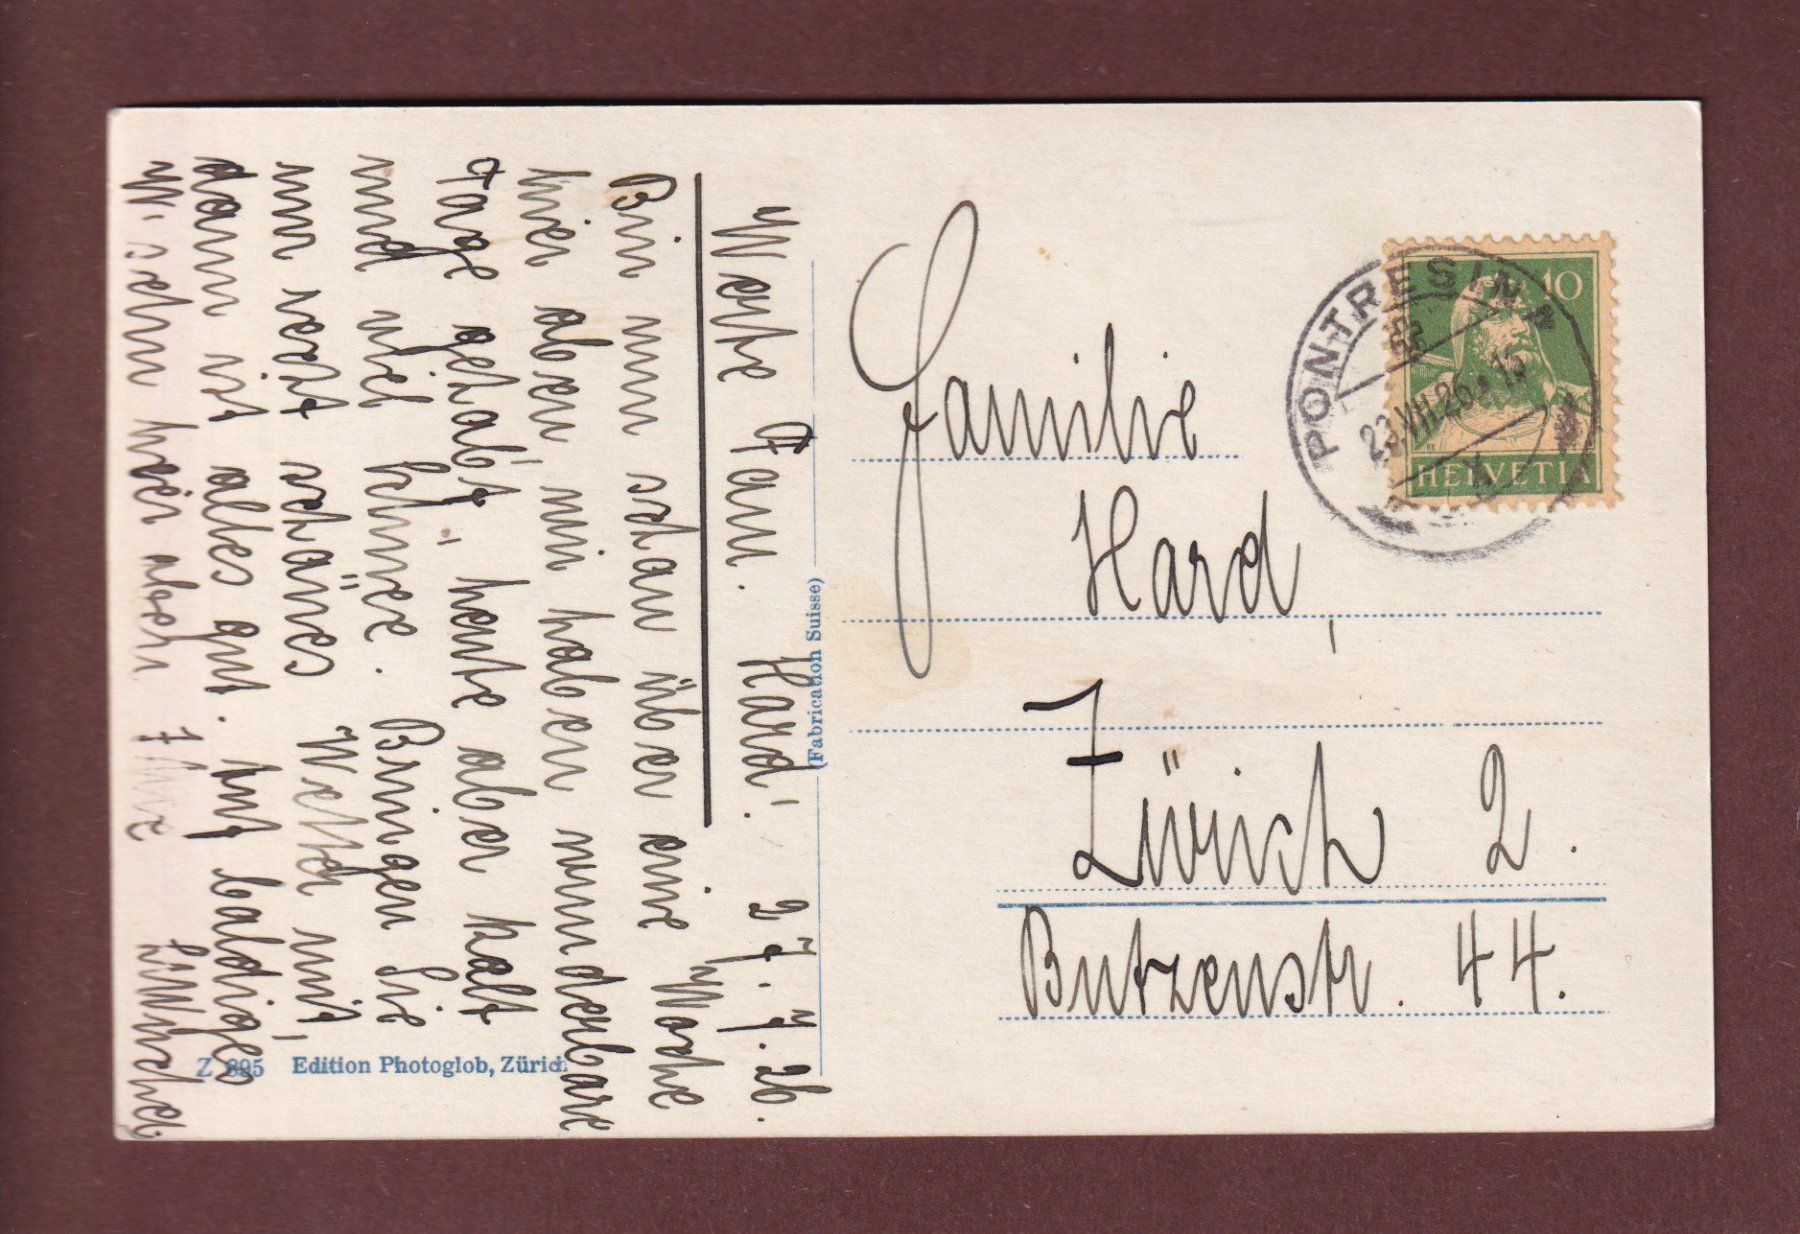 Werte Fam. Hard! 27.7.26.
Bin nun schon über eine Woche
hier oben, wir haben wunderbare
Tage gehabt, heute aber kalt
und viel Schnee. Bringen Sie
nur recht schönes Wetter mit,
dann ist alles gut. Auf baldiges
W. sehn hier oben
Familie
Hard,
Zürich 2.
Butzenstr. 44.
PONTRESINA
VII.26
10
HELVETIA
(Fabrication Suisse)
Z 895 Edition Photoglob, Zürich